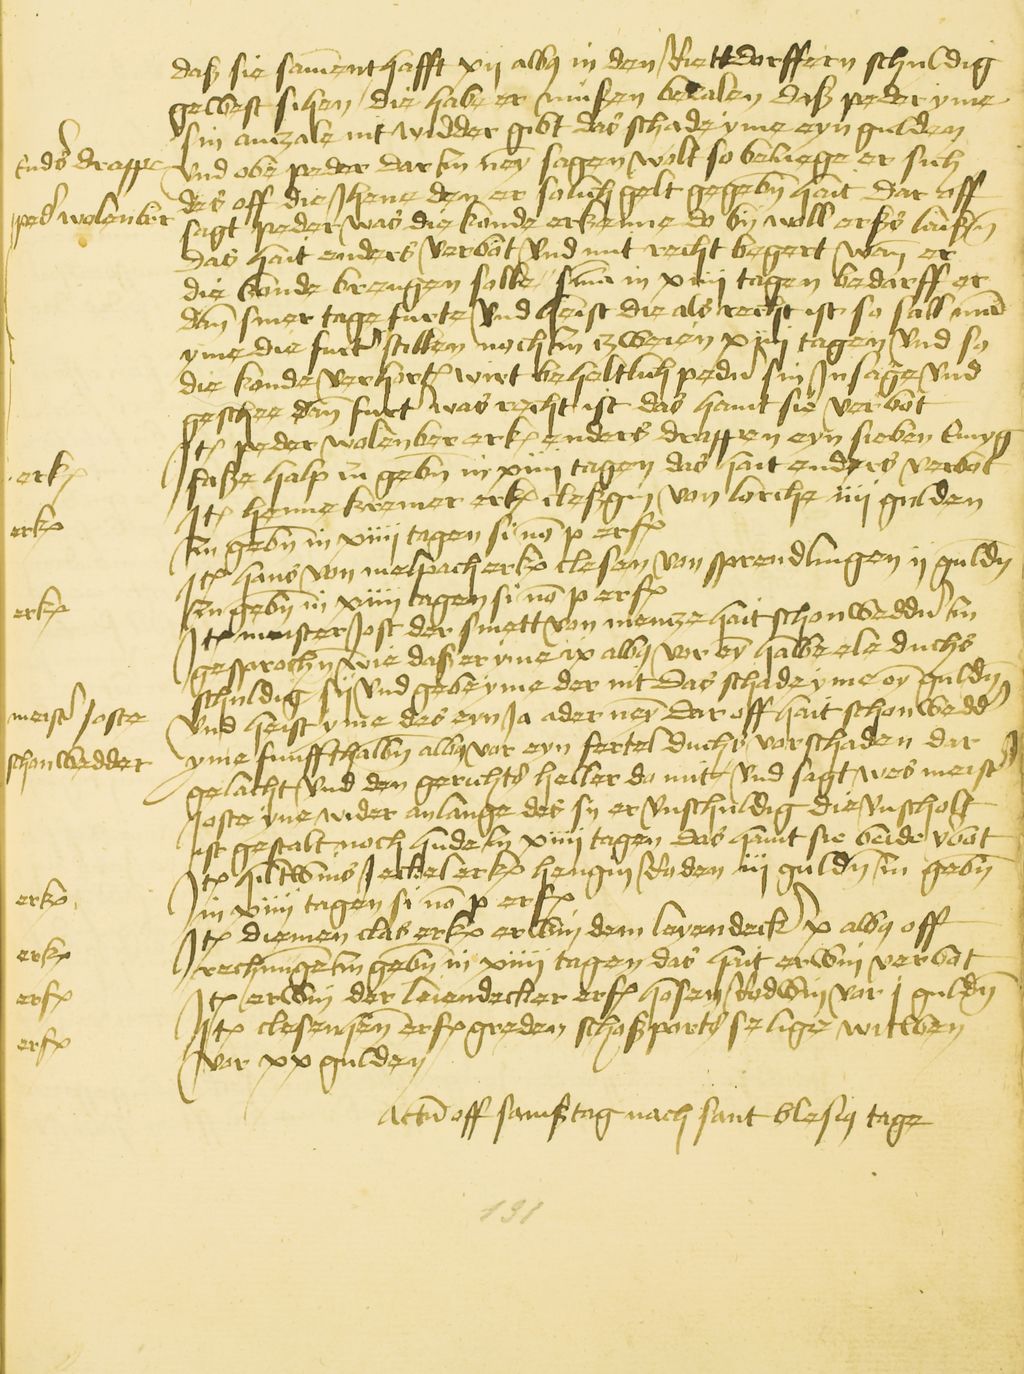 daß sie sament hafft xij alb9 in den Riettdorffern schuldig
gewest sihen die habe er müßen betzalen daß peder yme
sin anzale nit widder gibt das schade yme eyn gulden
Und obe peder dar zu ney sagen wolt so beziege er sich
Endrs drappe
des off die Jhene den er solich gelt gegebin hait dar off
ped wolenbir
sagt peder was die konde erkenne do bij woll erß laißen
das hait enders verbot Und mit recht begert wan er
die konde brengen solle sima in xiiij tagen bedarff er
dan siner tage furter Und heist die als recht ist so sall man
yme die furter stillen noch zu zweien xiiij tagen Und so
die konde verhort wirt beheltlich peder sin Insage Und
geschee dan furter was recht ist das hant sie verbot
Jt peder wolenber erk enders drappen eyn sieben Emyg
erk
faße halp zu geben in xiiij tagen das hait enders verbot
Jt henne kremer erk cleßgin von lorche iiij gulden
erk
zu geben in xiiij tagen si no p erf
Jt hans von melpach erk clesen von sprendlingen ij guldin
erk
zu geben in xiiij tagen si no p erf
Jt meister Jost der smett von mentze hait schonwedder zu
gesprochen wie daß er yme ix alb9 vor ey halbe ele duchs
schuldig sij Und gebe yme der nit das schade yme ey guldin
meister Joste
Und heist yme des eyn Ja ader ney dar off hait schonwedder
schonwedder
yme funffthalbin alb9 vor eyn fertel duchs vorschaden dar
gelacht Und den gerichts heller do mit Und sagt wes meister
Joste yne wider anlange des sy er Unschuldig die Unscholt
ist gestalt noch hude zu xiiij tagen das hant sie beide vbot
Jt hiltwins Jeckel erk hengin Roden iij guldin zu gebin
erk
in xiiij tagen si no p erf
Jt diemen clas erk erwin dem leyendecker x alb9 off
erk
rechnunge zu gebin in xiiij tagen das hait erwin verbot
Jt erwin der leiendecker erf hosen Rodwin vor j guldin
erf
Jt clesenhen erf greden schoßports selige witwen
erf
vor xx gulden
Actum off samßtag nach sant blesij tage
131